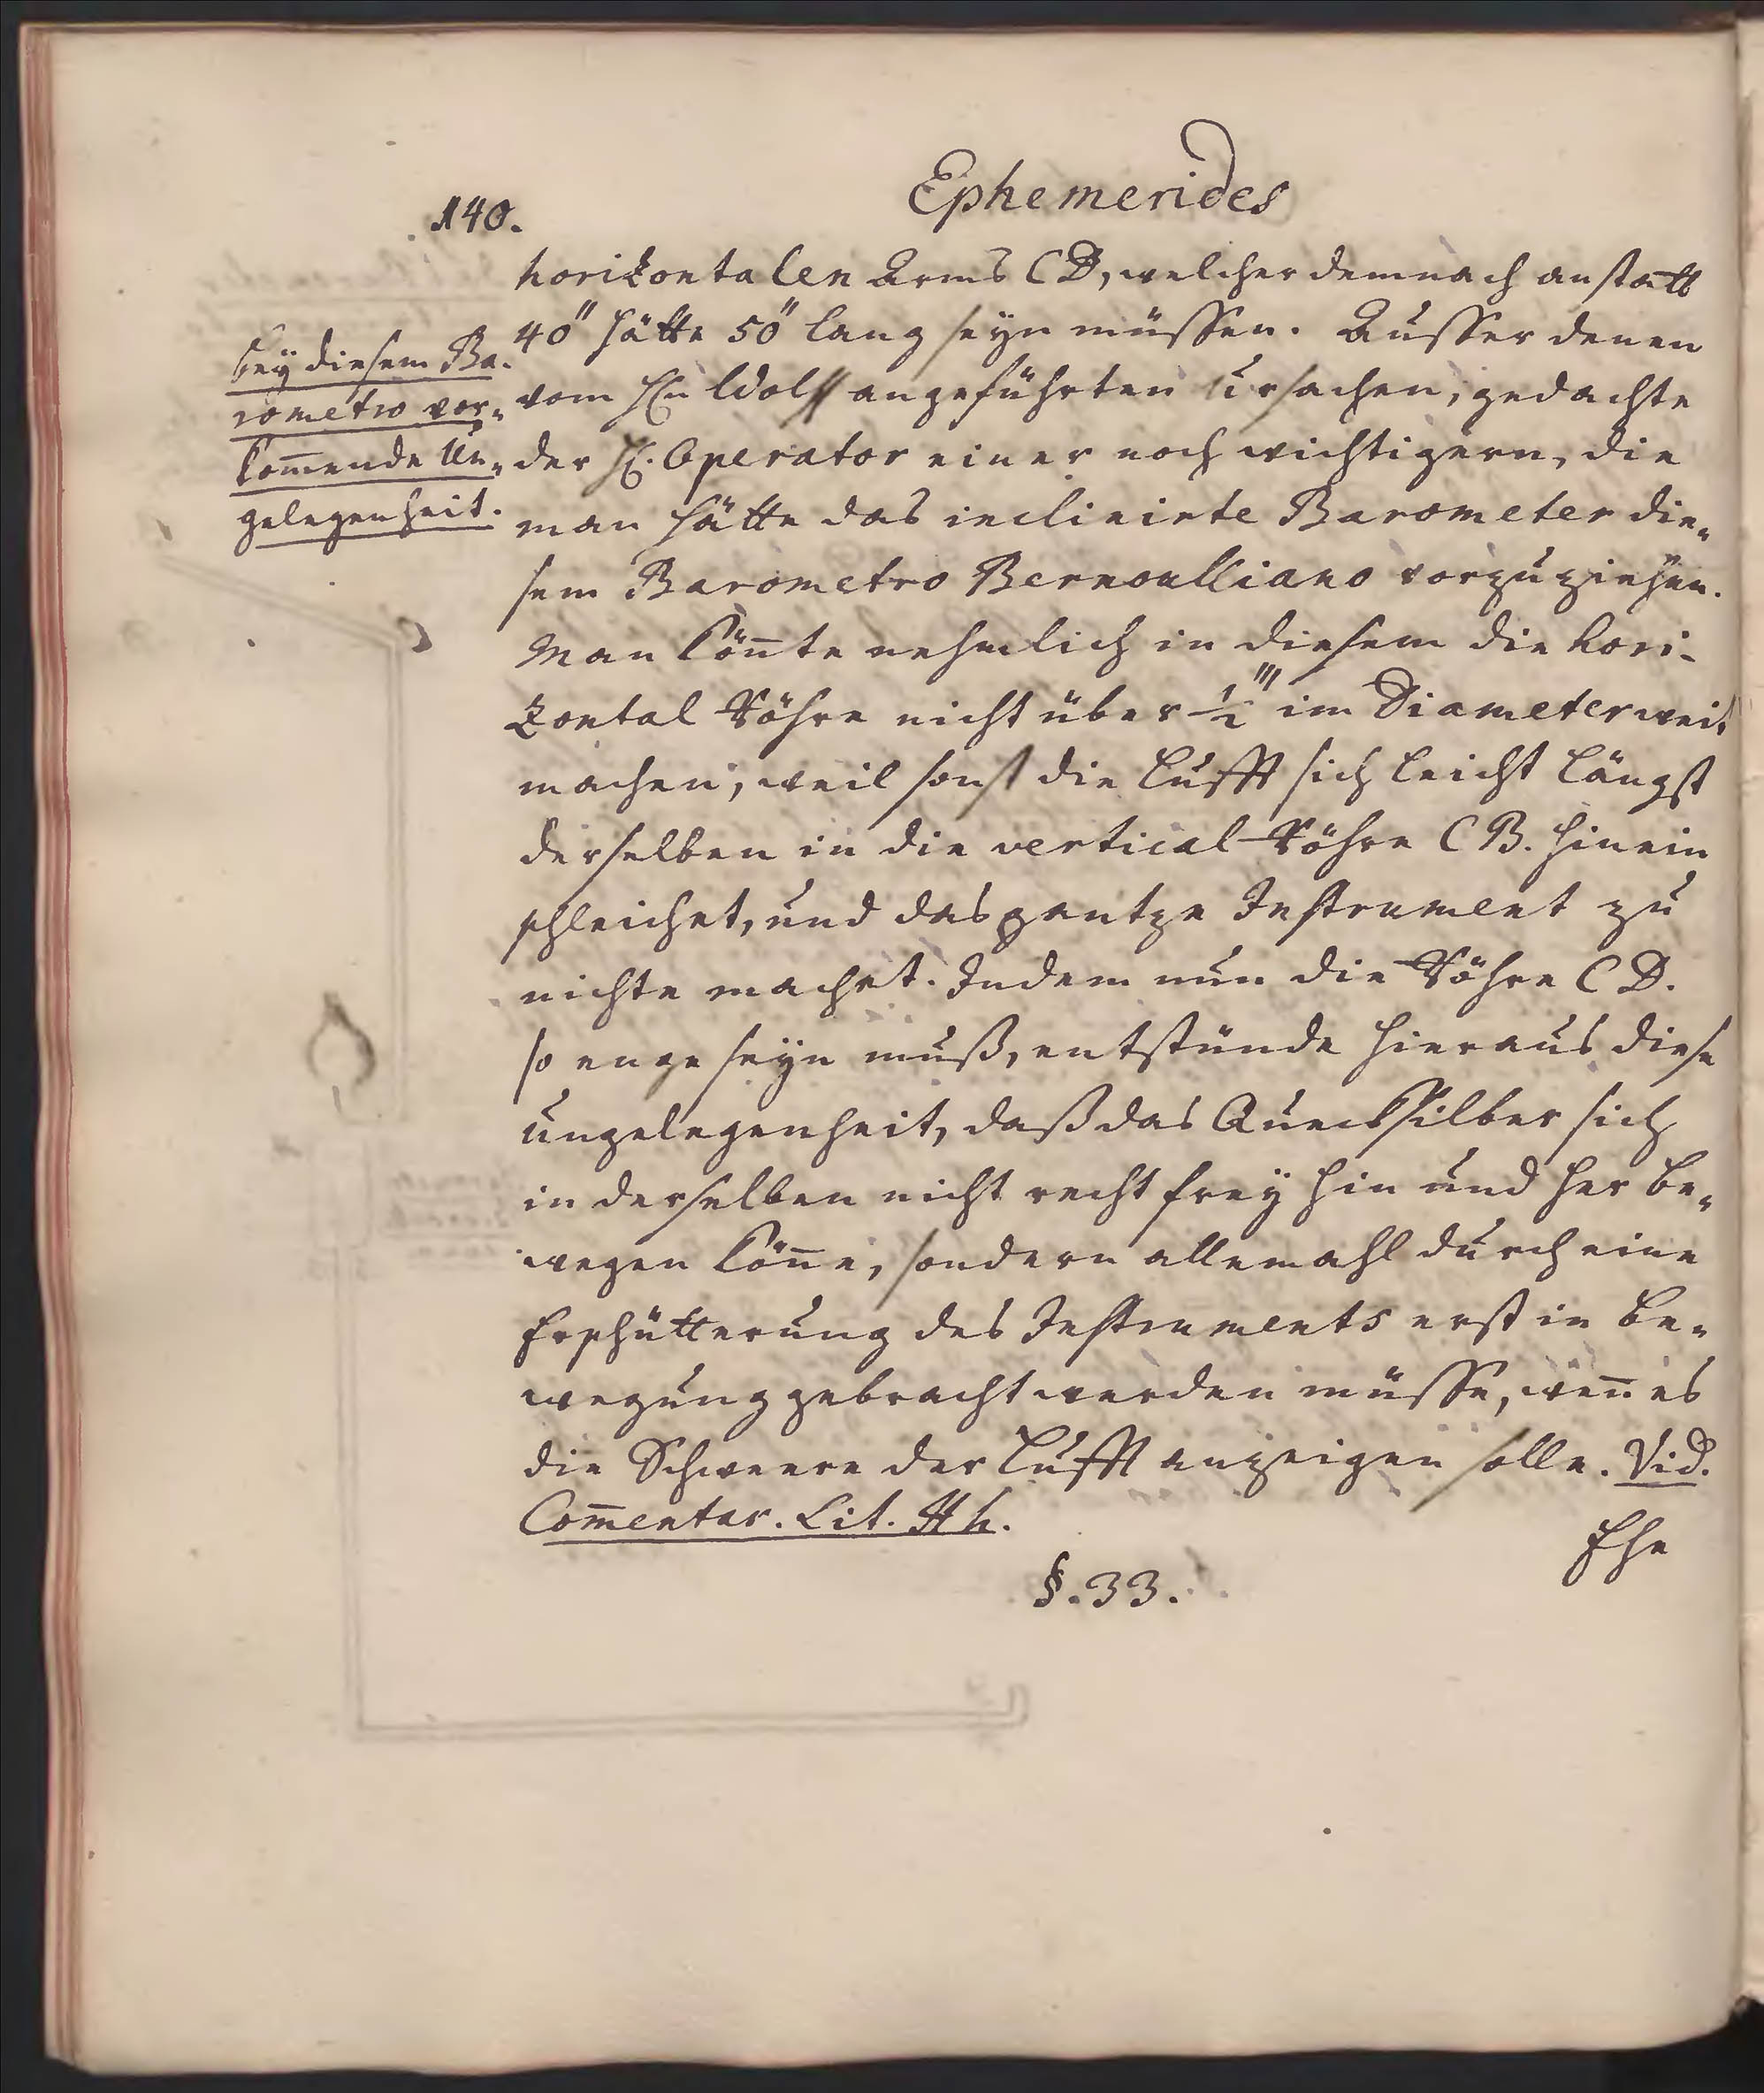 140.
Ephemerides
horizontalen Arms CD, welcher demnach anstatt
40" hätte 50" lang seyn müssen. Ausser denen
vom Hn Wolff angeführten Ursachen, gedachte
der H. Operator einer noch wichtigern, die
man hätte das inclinirte Barometer die„
sem Barometro Bernoulliano vorzuziehen.
Man kön̅te nehmlich in diesem die hori-
zontal Röhre nicht über ½''' im Diameter weit
machen, weil sonst die Lufft sich leicht längst
derselben in die vertical-Röhre CB. hinein
schleichet, und das gantze Instrument zu
nichte machet. Indem nun die Röhre CD.
so enge seyn muß, entstünde hieraus diese
ungelegenheit, daß das Quecksilber sich
in derselben nicht recht frey hin und her be„
wegen kön̅e, sondern allemahl durch eine
Erschütterung des Instruments erst in be„
wegung gebracht werden müsse, wen̅ es
die Schweere der Lufft anzeigen solle. Vid.
Com̅entar. Lit. Hh.
Ehe
§. 33.
Bey diesem Ba.
rometro vor„
kom̅ende Un„
gelegenheit.